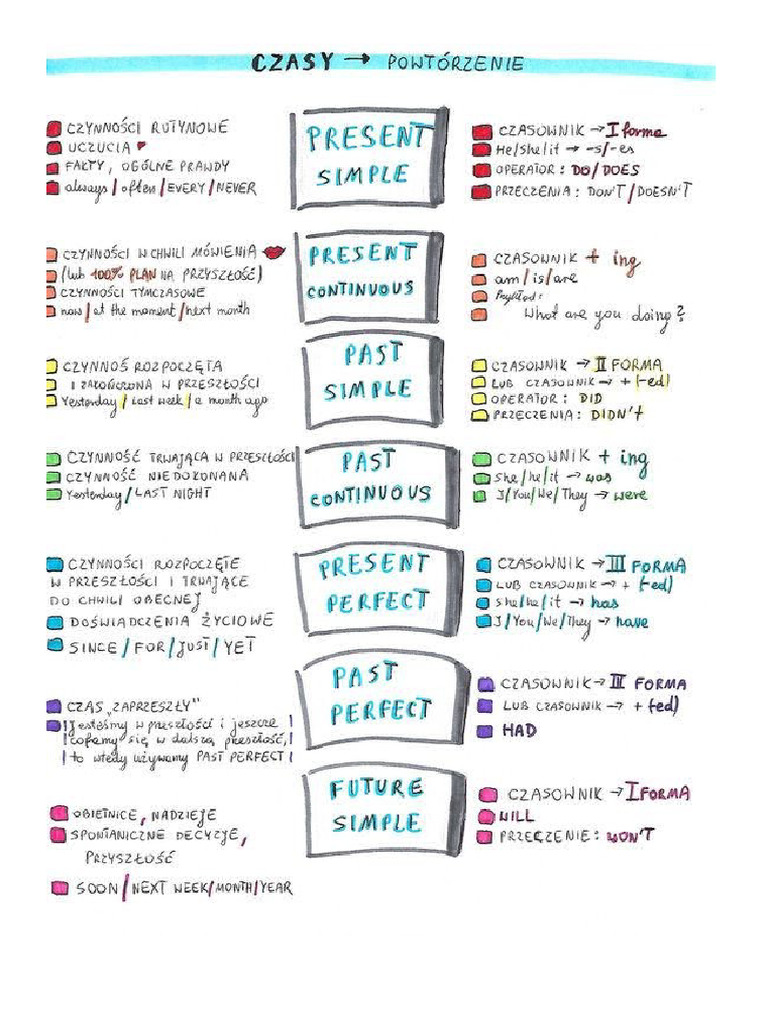 CZASY → POWTÓRZENIE
CZYNNOŚCI RUTYNOWE
UCZUCIA
FAKTY, OGÓLNE PRAWDY
always/often/EVERY/NEVER
PRESENT
SIMPLE
CZASOWNIK → I forma
He/she/it → -s/-es
OPERATOR: DO/DOES
PRZECZENIA: DON'T/DOESN'T
CZYNNOŚCI W CHWILI MÓWIENIA
(lub 100% PLAN NA PRZYSZŁOŚĆ)
CZYNNOŚCI TYMCZASOWE
now/at the moment/next month
PRESENT
CONTINUOUS
CZASOWNIK + ing
am/is/are
Przykład:
What are you doing?
CZYNNOŚ ROZPOCZĘTA
I ZAKOŃCZONA W PRZESZŁOŚCI
Yesterday/Last week/a month ago
PAST
SIMPLE
CZASOWNIK → II FORMA
LUB CZASOWNIK → + (-ed)
OPERATOR: DID
PRZECZENIA: DIDN't
CZYNNOŚĆ TRWAJĄCA W PRZESZŁOŚCI
CZYNNOŚĆ NIEDOKONANA
Yesterday/LAST NIGHT
PAST
CONTINUOUS
CZASOWNIK + ing
she/he/it → was
I/You/We/They → were
CZYNNOŚCI ROZPOCZĘTE
W PRZESZŁOŚCI I TRWAJĄCE
DO CHWILI OBECNEJ
DOŚWIADCZENIA ŻYCIOWE
SINCE/FOR/JUST/YET
PRESENT
PERFECT
CZASOWNIK → III FORMA
LUB CZASOWNIK → + (-ed)
she/he/it → has
I/You/We/They → have
CZAS „ZAPRZESZŁY"
Jesteśmy w przeszłości i jeszcze
cofamy się w dalszą przeszłość,
to wtedy używamy PAST PERFECT
PAST
PERFECT
CZASOWNIK → III FORMA
LUB CZASOWNIK → + (-ed)
HAD
OBIETNICE, NADZIEJE
SPONTANICZNE DECYZJE,
PRZYSZŁOŚĆ
SOON/NEXT WEEK/MONTH/YEAR
FUTURE
SIMPLE
CZASOWNIK → I FORMA
WILL
PRZECZENIE: WON'T